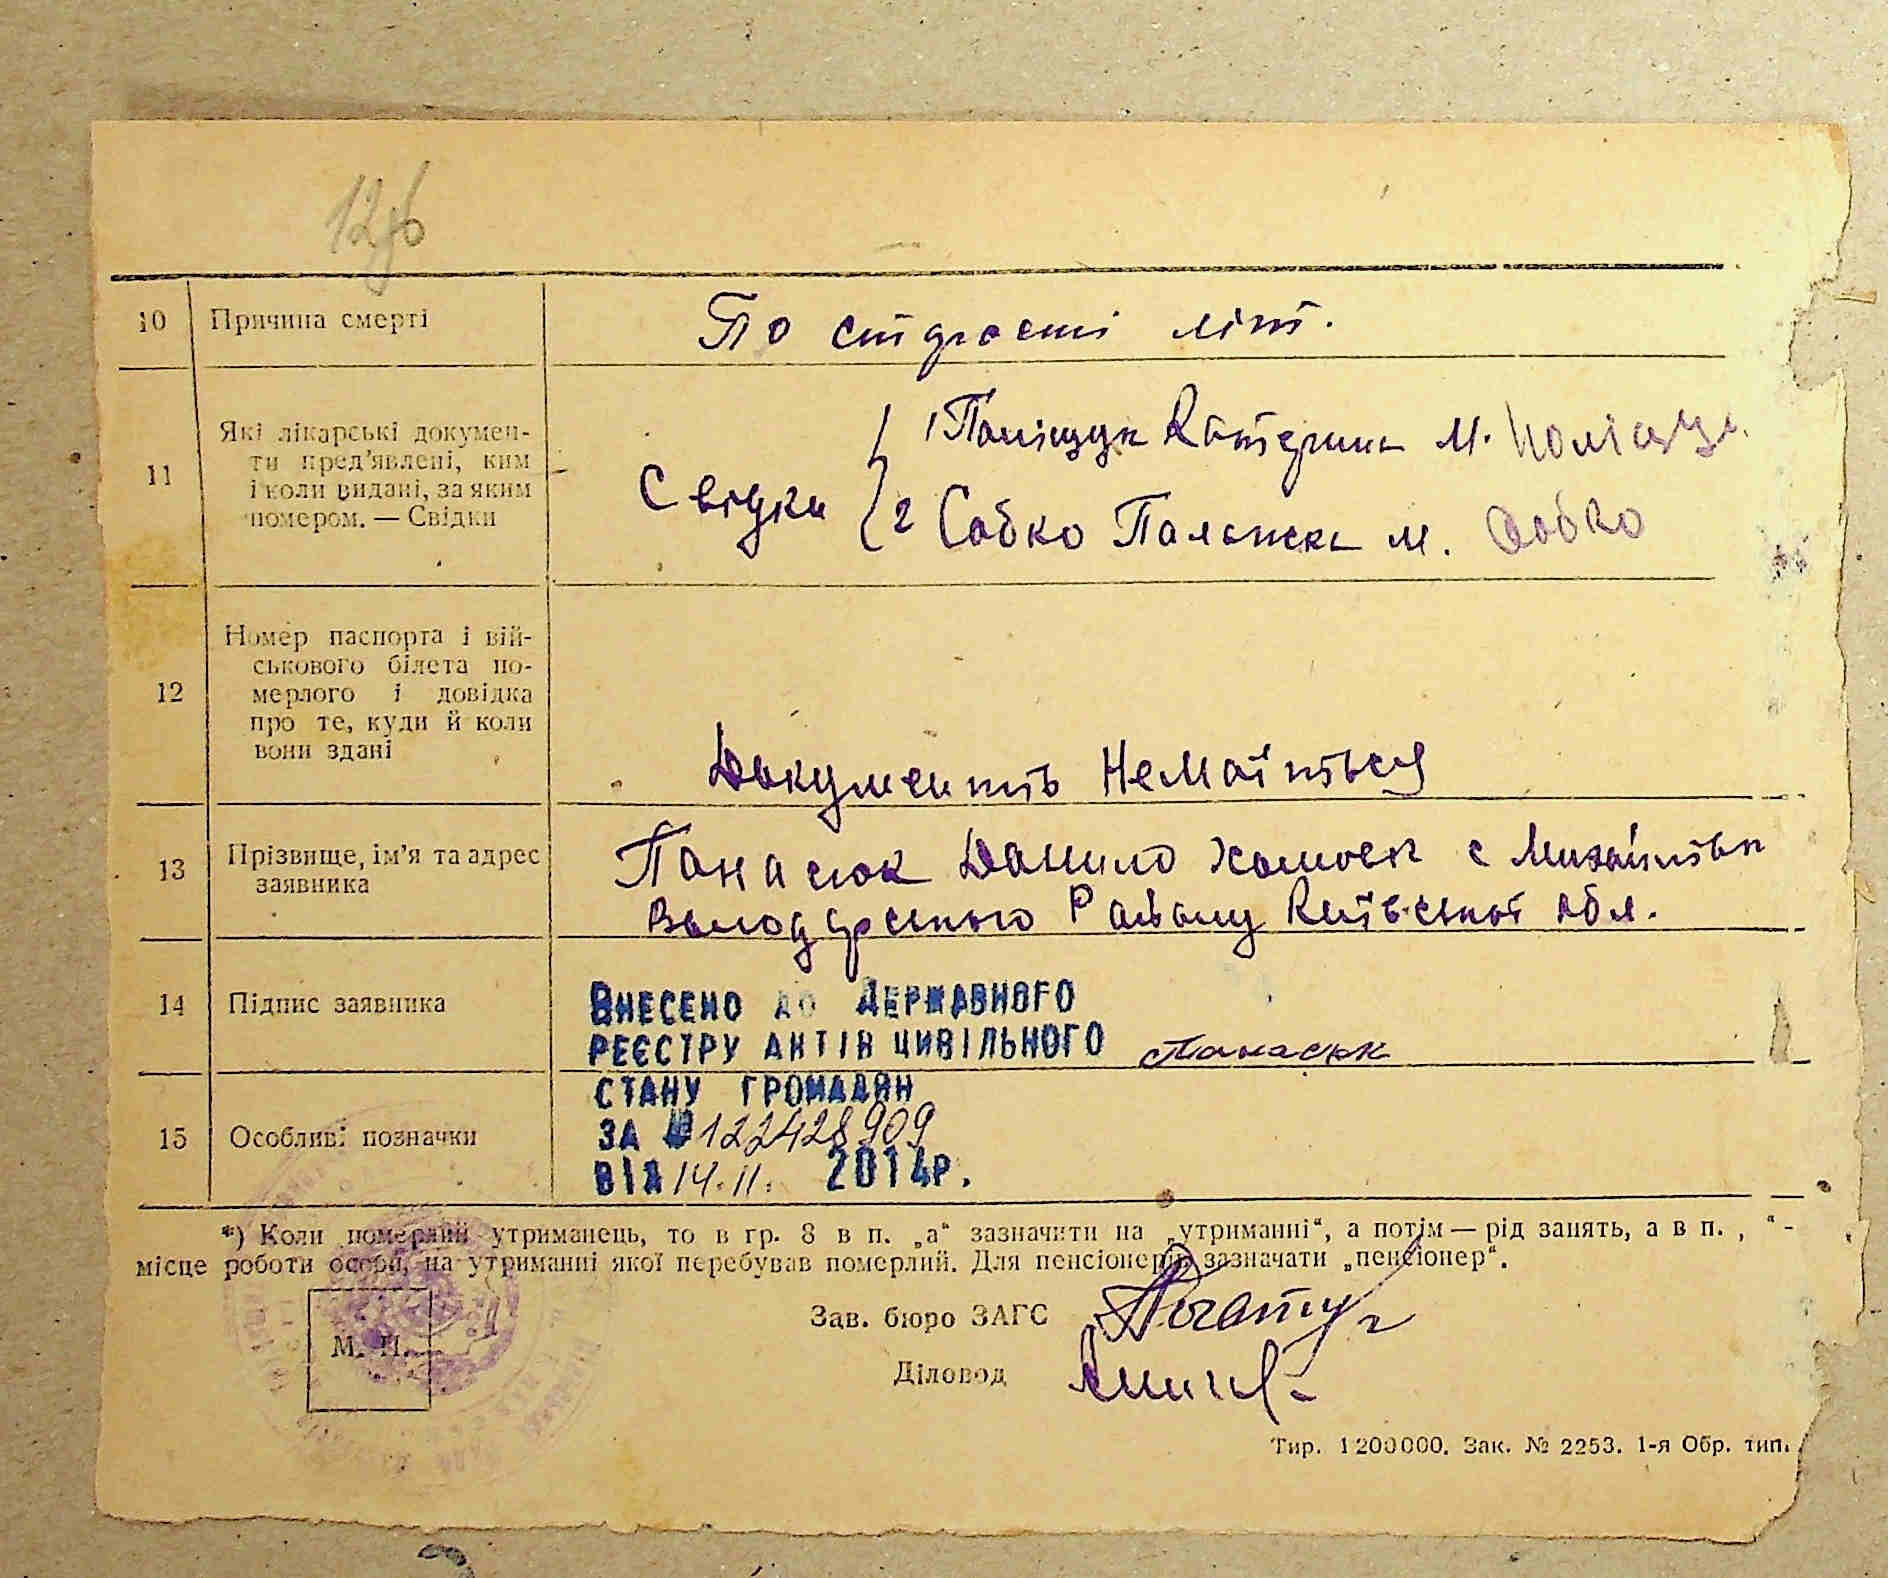 10 Причина смерті По старості літ.
11 Які лікарські докумен-
ти пред'явлені, ким
і коли видані, за яким
номером. — Свідки
Свідки
1 Поліщук Катерина М. Поліщук
2 Собко Палажка м. Собко
12 Номер паспорта і вій-
ськового білета по-
мерлого і довідка
про те, куди й коли
вони здані
Документів Немаїться
13 Прізвище, ім'я та адрес
заявника
Панасюк Данило с Михайлівки
Володарського Району Київської обл.
14 Підпис заявника
Панасюк
ВНЕСЕНО ДО ДЕРЖАВНОГО
РЕЄСТРУ АКТІВ ЦИВІЛЬНОГО
СТАНУ ГРОМАДЯН
ЗА № 122428909
ВІД 14.11. 2014Р.
15 Особливі позначки
*) Коли померлий утриманець, то в гр. 8 в п. „а“ зазначити на „утриманні“, а потім — рід занять, а в п. , “ -
місце роботи особи, на утриманні якої перебував померлий. Для пенсіонерів зазначати „пенсіонер“.
М. П.
Зав. бюро ЗАГС
Діловод
Тир. 1200000. Зак. № 2253. 1-я Обр. тип.